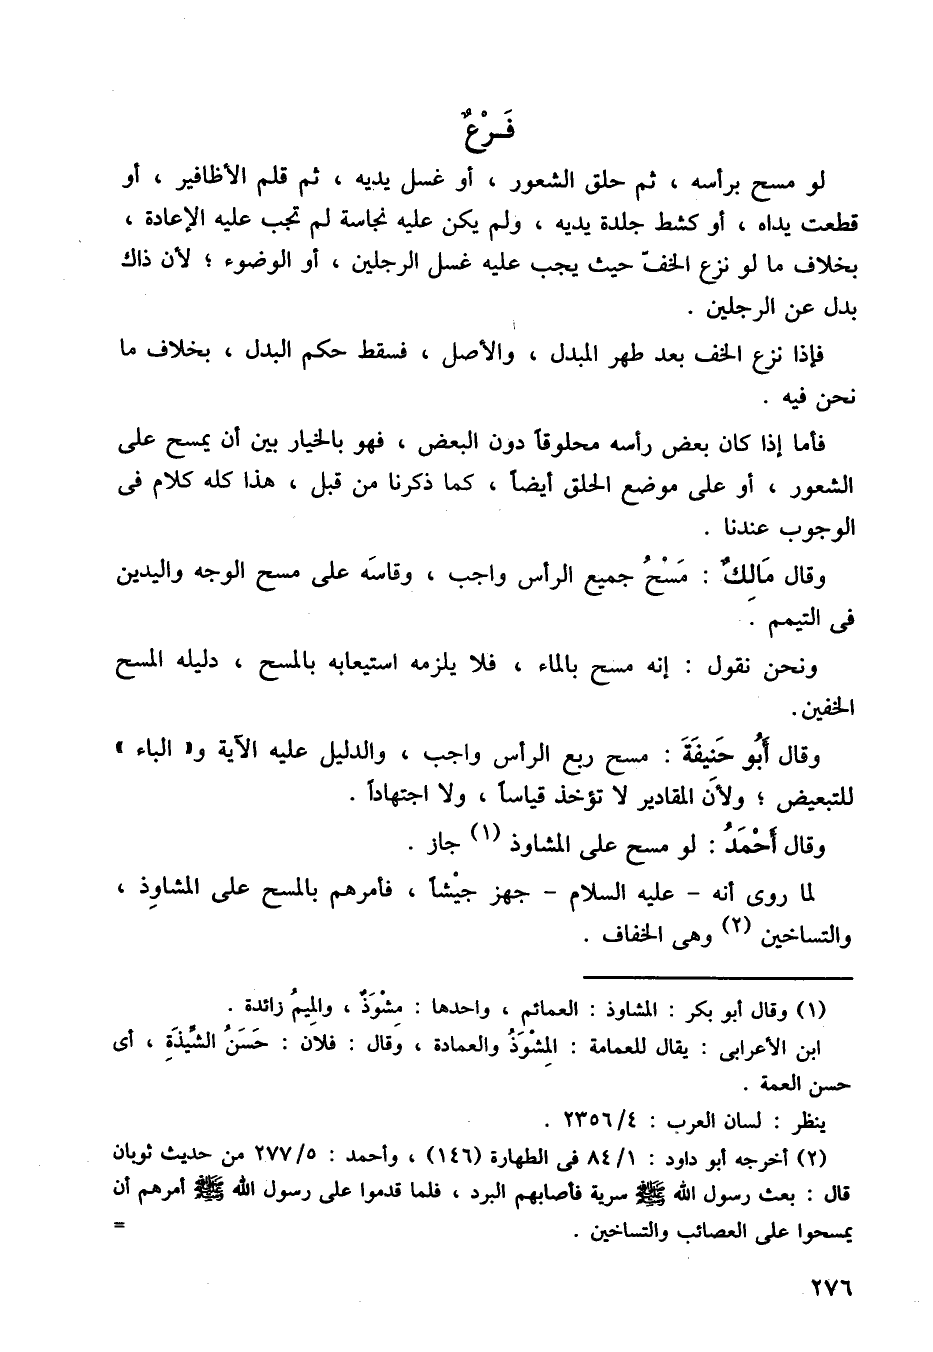 فَـرْعٌ
لو مسح برأسه ، ثم حلق الشعور ، أو غسل يديه ، ثم قلم الأظافير ، أو
قطعت يداه ، أو كشط جلدة يديه ، ولم يكن عليه نجاسة لم تجب عليه الإعادة ،
بخلاف ما لو نزع الخفّ حيث يجب عليه غسل الرجلين ، أو الوضوء ؛ لأن ذاك
بدل عن الرجلين .
فإذا نزع الخف بعد طهر المبدل ، والأصل ، فسقط حكم البدل ، بخلاف ما
نحن فيه .
فأما إذا كان بعض رأسه محلوقاً دون البعض ، فهو بالخيار بين أن يمسح على
الشعور ، أو على موضع الحلق أيضاً ، كما ذكرنا من قبل ، هذا كله كلام فى
الوجوب عندنا .
وقال مَالِكٌ : مَسْحُ جميع الرأس واجب ، وقاسَه على مسح الوجه واليدين
فى التيمم .
ونحن نقول : إنه مسح بالماء ، فلا يلزمه استيعابه بالمسح ، دليله المسح
الخفين.
وقال أَبُو حَنِيفَةَ : مسح ربع الرأس واجب ، والدليل عليه الآية و« الباء »
للتبعيض ؛ ولأن المقادير لا تؤخذ قياساً ، ولا اجتهاداً .
وقال أَحْمَدُ : لو مسح على المشاوذ (١) جاز .
لما روى أنه - عليه السلام - جهز جيْشاً ، فأمرهم بالمسح على المشاوِذ ،
والتساخين (٢) وهى الخفاف .
(١) وقال أبو بكر : المشاوذ : العمائم ، واحدها : مِشْوَذٌ ، والميمُ زائدة .
ابن الأعرابى : يقال للعمامة : المِشْوَذُ والعمادة ، وقال : فلان : حَسَنُ الشِّيذَةِ ، أى
حسن العمة .
ينظر : لسان العرب : ٢٣٥٦/٤ .
(٢) أخرجه أبو داود : ٨٤/١ فى الطهارة (١٤٦) ، وأحمد : ٢٧٧/٥ من حديث ثوبان
قال : بعث رسول الله ﷺ سرية فأصابهم البرد ، فلما قدموا على رسول الله ﷺ أمرهم أن
يمسحوا على العصائب والتساخين . =
٢٧٦